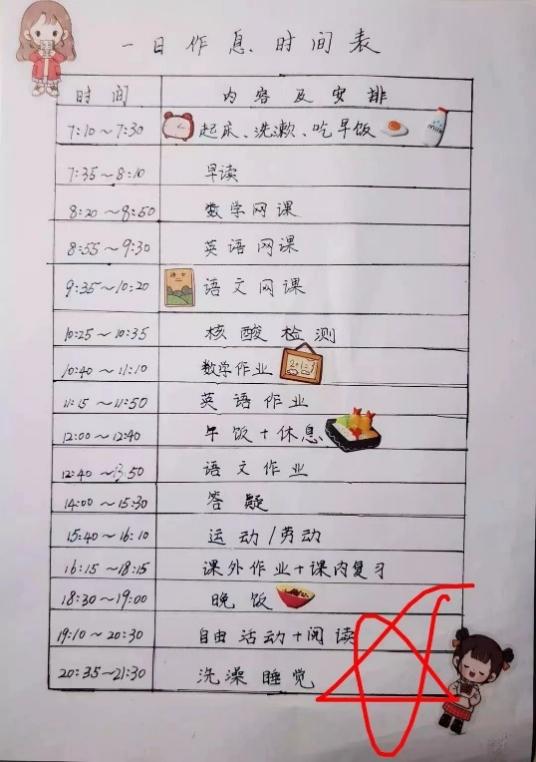 一日作息时间表
时间 内容及安排
7:10~7:30 起床、洗漱、吃早饭
7:35~8:10 早读
8:20~8:50 数学网课
8:55~9:30 英语网课
9:35~10:20 语文网课
10:25~10:35 核酸检测
10:40~11:10 数学作业
11:15~11:50 英语作业
12:00~12:40 午饭+休息
12:40~13:50 语文作业
14:00~15:30 答疑
15:40~16:10 运动/劳动
16:15~18:15 课外作业+课内复习
18:30~19:00 晚饭
19:10~20:30 自由活动+阅读
20:35~21:30 洗澡睡觉